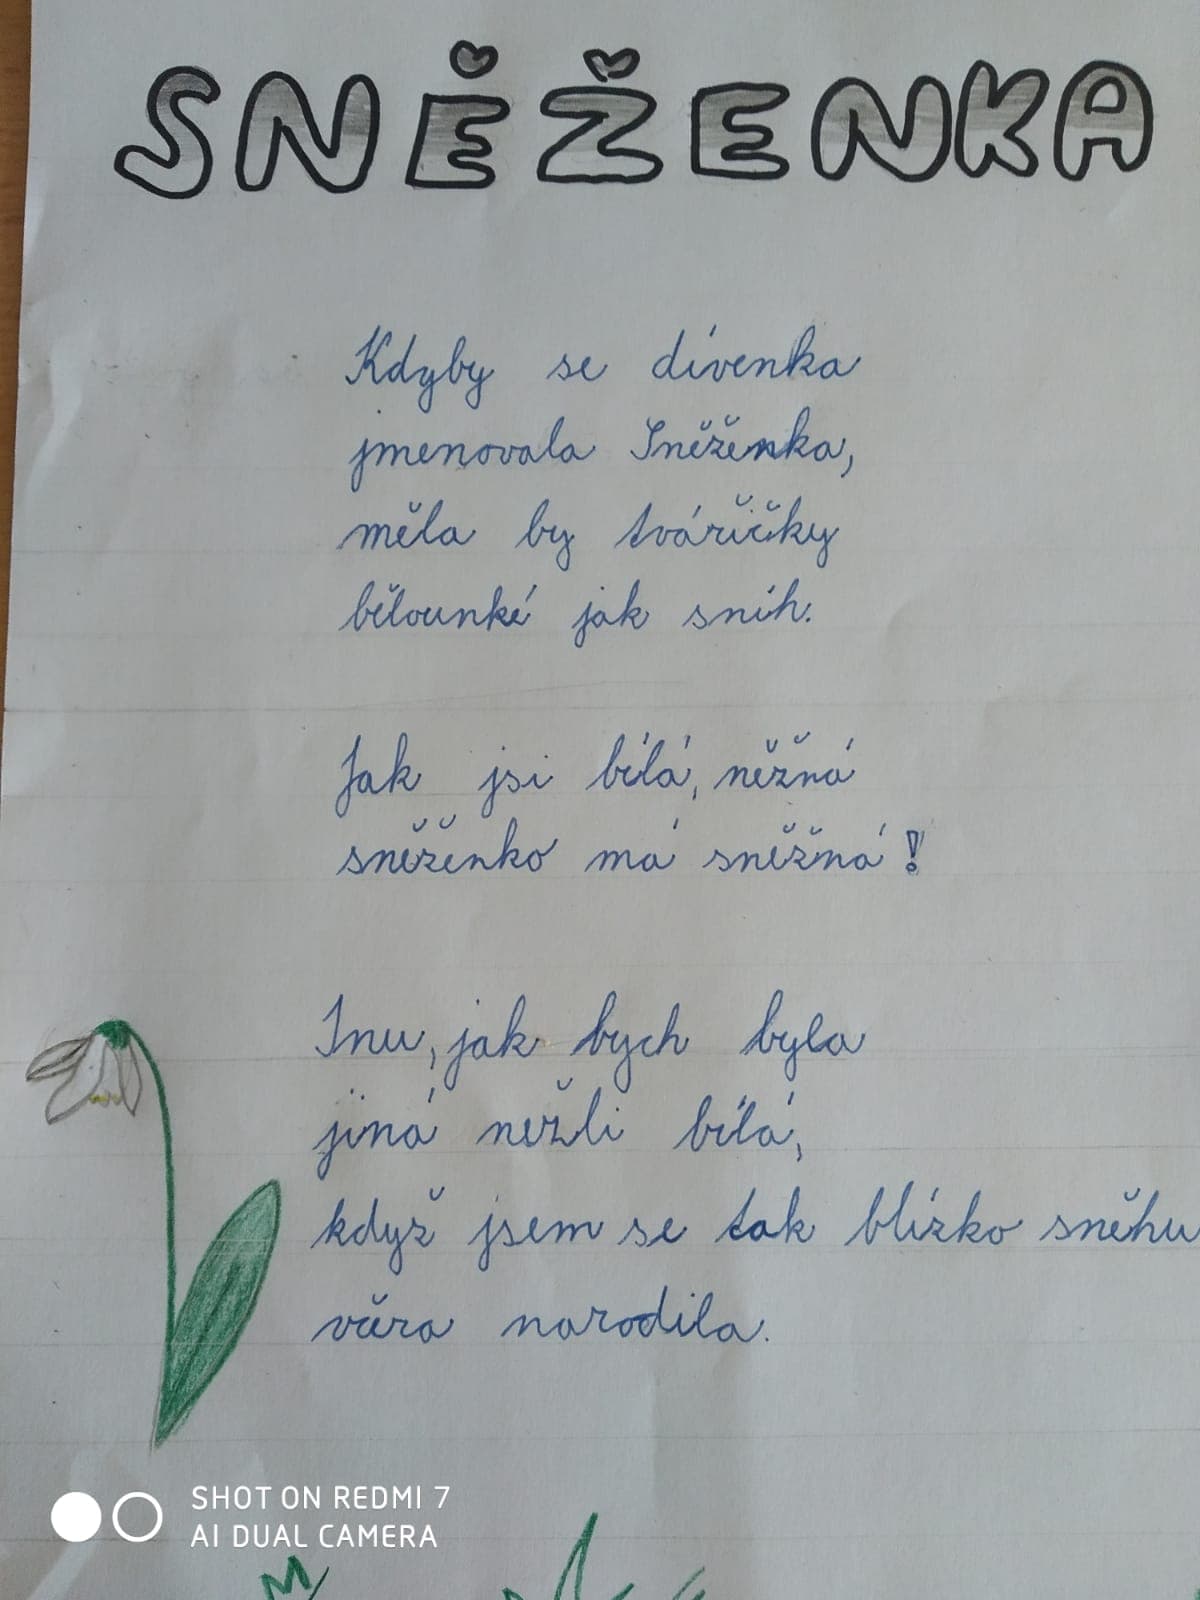 SNĚŽENKA
Kdyby se dívenka
jmenovala Sněženka,
měla by tvářičky
bělounké jak sníh.
Jak jsi bílá, něžná
sněženko má sněžná!
Inu, jak bych byla
jiná nežli bílá,
když jsem se tak blízko sněhu
včera narodila.
SHOT ON REDMI 7
AI DUAL CAMERA